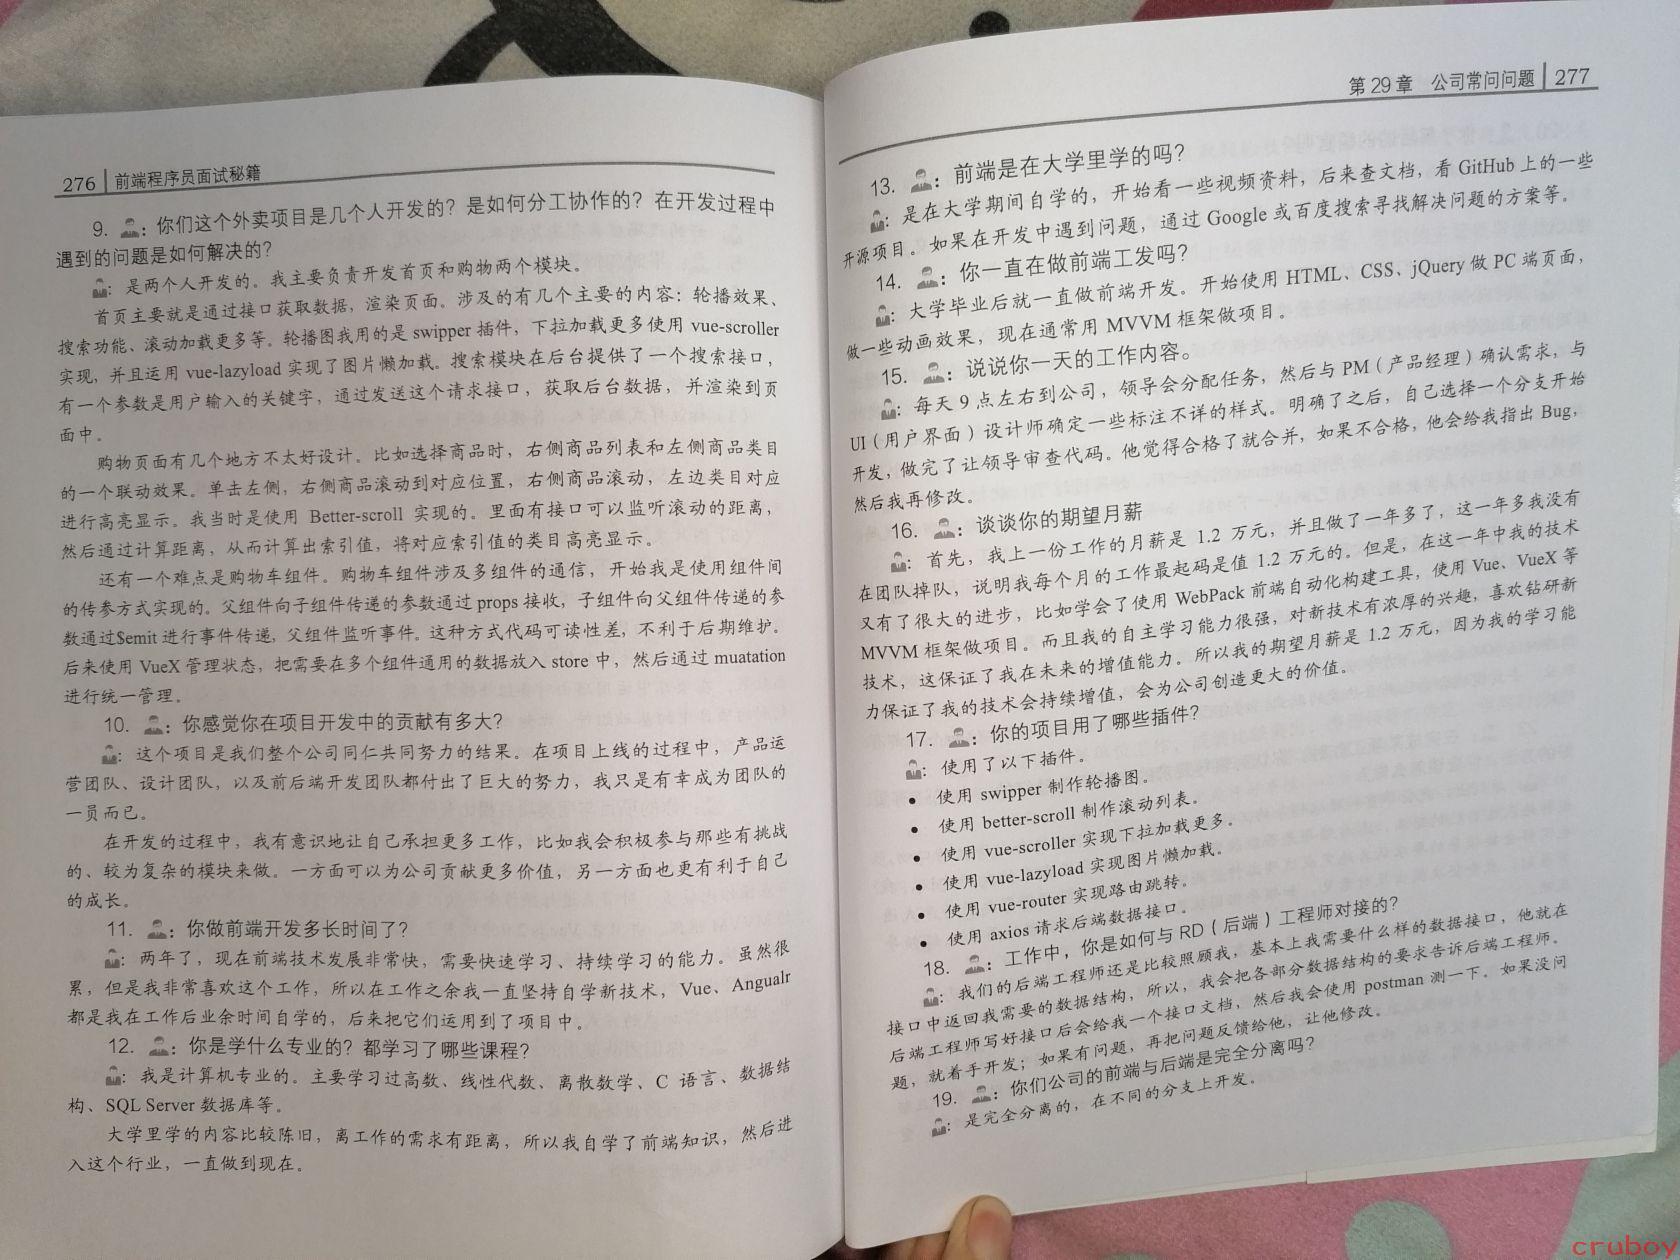 276 前端程序员面试秘籍
9. ：你们这个外卖项目是几个人开发的？是如何分工协作的？在开发过程中
遇到的问题是如何解决的？
：是两个人开发的。我主要负责开发首页和购物两个模块。
首页主要就是通过接口获取数据，渲染页面。涉及的有几个主要的内容：轮播效果、
搜索功能、滚动加载更多等。轮播图我用的是 swipper 插件，下拉加载更多使用 vue-scroller
实现，并且运用 vue-lazyload 实现了图片懒加载。搜索模块在后台提供了一个搜索接口，
有一个参数是用户输入的关键字，通过发送这个请求接口，获取后台数据，并渲染到页
面中。
购物页面有几个地方不太好设计。比如选择商品时，右侧商品列表和左侧商品类目
的一个联动效果。单击左侧，右侧商品滚动到对应位置，右侧商品滚动，左边类目对应
进行高亮显示。我当时是使用 Better-scroll 实现的。里面有接口可以监听滚动的距离，
然后通过计算距离，从而计算出索引值，将对应索引值的类目高亮显示。
还有一个难点是购物车组件。购物车组件涉及多组件的通信，开始我是使用组件间
的传参方式实现的。父组件向子组件传递的参数通过 props 接收，子组件向父组件传递的参
数通过$emit 进行事件传递，父组件监听事件。这种方式代码可读性差，不利于后期维护。
后来使用 VueX 管理状态，把需要在多个组件通用的数据放入 store 中，然后通过 muatation
进行统一管理。
10. ：你感觉你在项目开发中的贡献有多大？
：这个项目是我们整个公司同仁共同努力的结果。在项目上线的过程中，产品运
营团队、设计团队，以及前后端开发团队都付出了巨大的努力，我只是有幸成为团队的
一员而已。
在开发的过程中，我有意识地让自己承担更多工作，比如我会积极参与那些有挑战
的、较为复杂的模块来做。一方面可以为公司贡献更多价值，另一方面也更有利于自己
的成长。
11. ：你做前端开发多长时间了？
：两年了，现在前端技术发展非常快，需要快速学习、持续学习的能力。虽然很
累，但是我非常喜欢这个工作，所以在工作之余我一直坚持自学新技术，Vue、Angualr
都是我在工作后业余时间自学的，后来把它们运用到了项目中。
12. ：你是学什么专业的？都学习了哪些课程？
：我是计算机专业的。主要学习过高数、线性代数、离散数学、C 语言、数据结
构、SQL Server 数据库等。
大学里学的内容比较陈旧，离工作的需求有距离，所以我自学了前端知识，然后进
入这个行业，一直做到现在。
第 29 章 公司常问问题 277
13. ：前端是在大学里学的吗？
：是在大学期间自学的，开始看一些视频资料，后来查文档，看 GitHub 上的一些
开源项目。如果在开发中遇到问题，通过 Google 或百度搜索寻找解决问题的方案等。
14. ：你一直在做前端工发吗？
：大学毕业后就一直做前端开发。开始使用 HTML、CSS、jQuery 做 PC 端页面，
做一些动画效果，现在通常用 MVVM 框架做项目。
15. ：说说你一天的工作内容。
：每天 9 点左右到公司，领导会分配任务，然后与 PM（产品经理）确认需求，与
UI（用户界面）设计师确定一些标注不详的样式。明确了之后，自己选择一个分支开始
开发，做完了让领导审查代码。他觉得合格了就合并，如果不合格，他会给我指出 Bug，
然后我再修改。
16. ：谈谈你的期望月薪
：首先，我上一份工作的月薪是 1.2 万元，并且做了一年多了，这一年多我没有
在团队掉队，说明我每个月的工作最起码是值 1.2 万元的。但是，在这一年中我的技术
又有了很大的进步，比如学会了使用 WebPack 前端自动化构建工具，使用 Vue、VueX 等
MVVM 框架做项目。而且我的自主学习能力很强，对新技术有浓厚的兴趣，喜欢钻研新
技术，这保证了我在未来的增值能力。所以我的期望月薪是 1.2 万元，因为我的学习能
力保证了我的技术会持续增值，会为公司创造更大的价值。
17. ：你的项目用了哪些插件？
：使用了以下插件。
• 使用 swipper 制作轮播图。
• 使用 better-scroll 制作滚动列表。
• 使用 vue-scroller 实现下拉加载更多。
• 使用 vue-lazyload 实现图片懒加载。
• 使用 vue-router 实现路由跳转。
• 使用 axios 请求后端数据接口。
18. ：工作中，你是如何与 RD（后端）工程师对接的？
：我们的后端工程师还是比较照顾我，基本上我需要什么样的数据接口，他就在
接口中返回我需要的数据结构，所以，我会把各部分数据结构的要求告诉后端工程师。
后端工程师写好接口后会给我一个接口文档，然后我会使用 postman 测一下。如果没问
题，就着手开发；如果有问题，再把问题反馈给他，让他修改。
19. ：你们公司的前端与后端是完全分离吗？
：是完全分离的，在不同的分支上开发。
cruboy